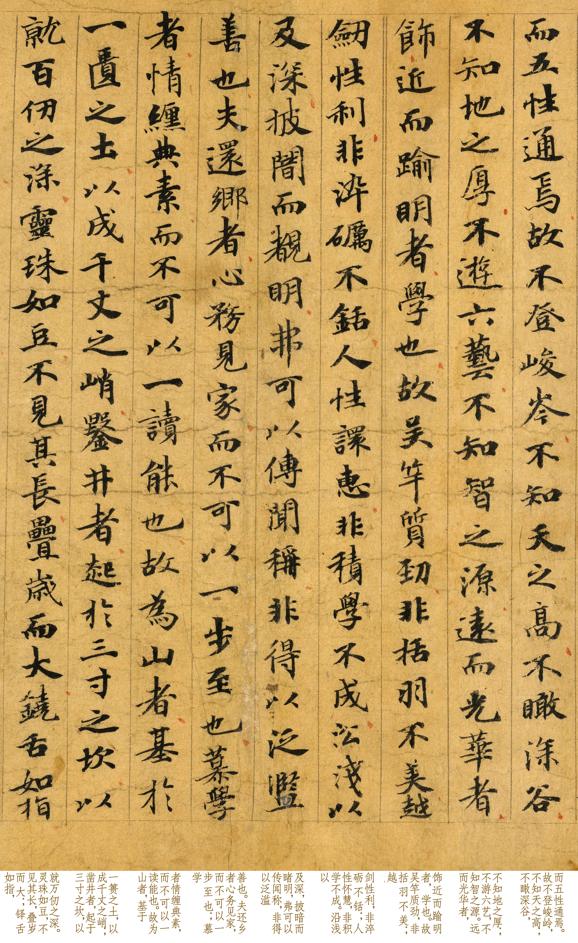 而五性通焉故不登峻岑不知天之高不瞰深谷
不知地之厚不遊六藝不知智之源遠而光華者
飾近而踰明者學也故吴竿質勁非括羽不美越
劒性利非淬礪不銛人性譞惠非積學不成㳂淺以
及深披闇而覩明弗可以傳聞稱非得以泛濫
善也夫還鄉者心務見家而不可以一步至也慕學
者情纏典素而不可以一讀能也故為山者基於
一匱之土以成千丈之峭鑿井者起於三寸之坎以
就百仞之深靈珠如豆不見其長疊歲而大鐃舌如指
而五性通焉。
故不登峻岭，
不知天之高；
不瞰深谷，
不知地之厚；
不游六艺，不
知智之源。远
而光华者，
饰近而踰明
者，学也。故
吴竿质劲，非
括羽不美，
越
剑性利，非淬
砺不铦；人
性怀慧，非积
学不成。沿浅
以
及深，披暗而
睹明，弗可以
传闻称，非得
以泛滥
善也。夫还乡
者心务见家，
而不可以一
步至也；慕
学
者情缠典素，
而不可以一
读能也。故为
山者，基于
一篑之土，以
成千丈之峭，
凿井者，起于
三寸之坎，以
就万仞之深。
灵珠如豆，不
见其长，叠岁
而大；铎舌
如指，